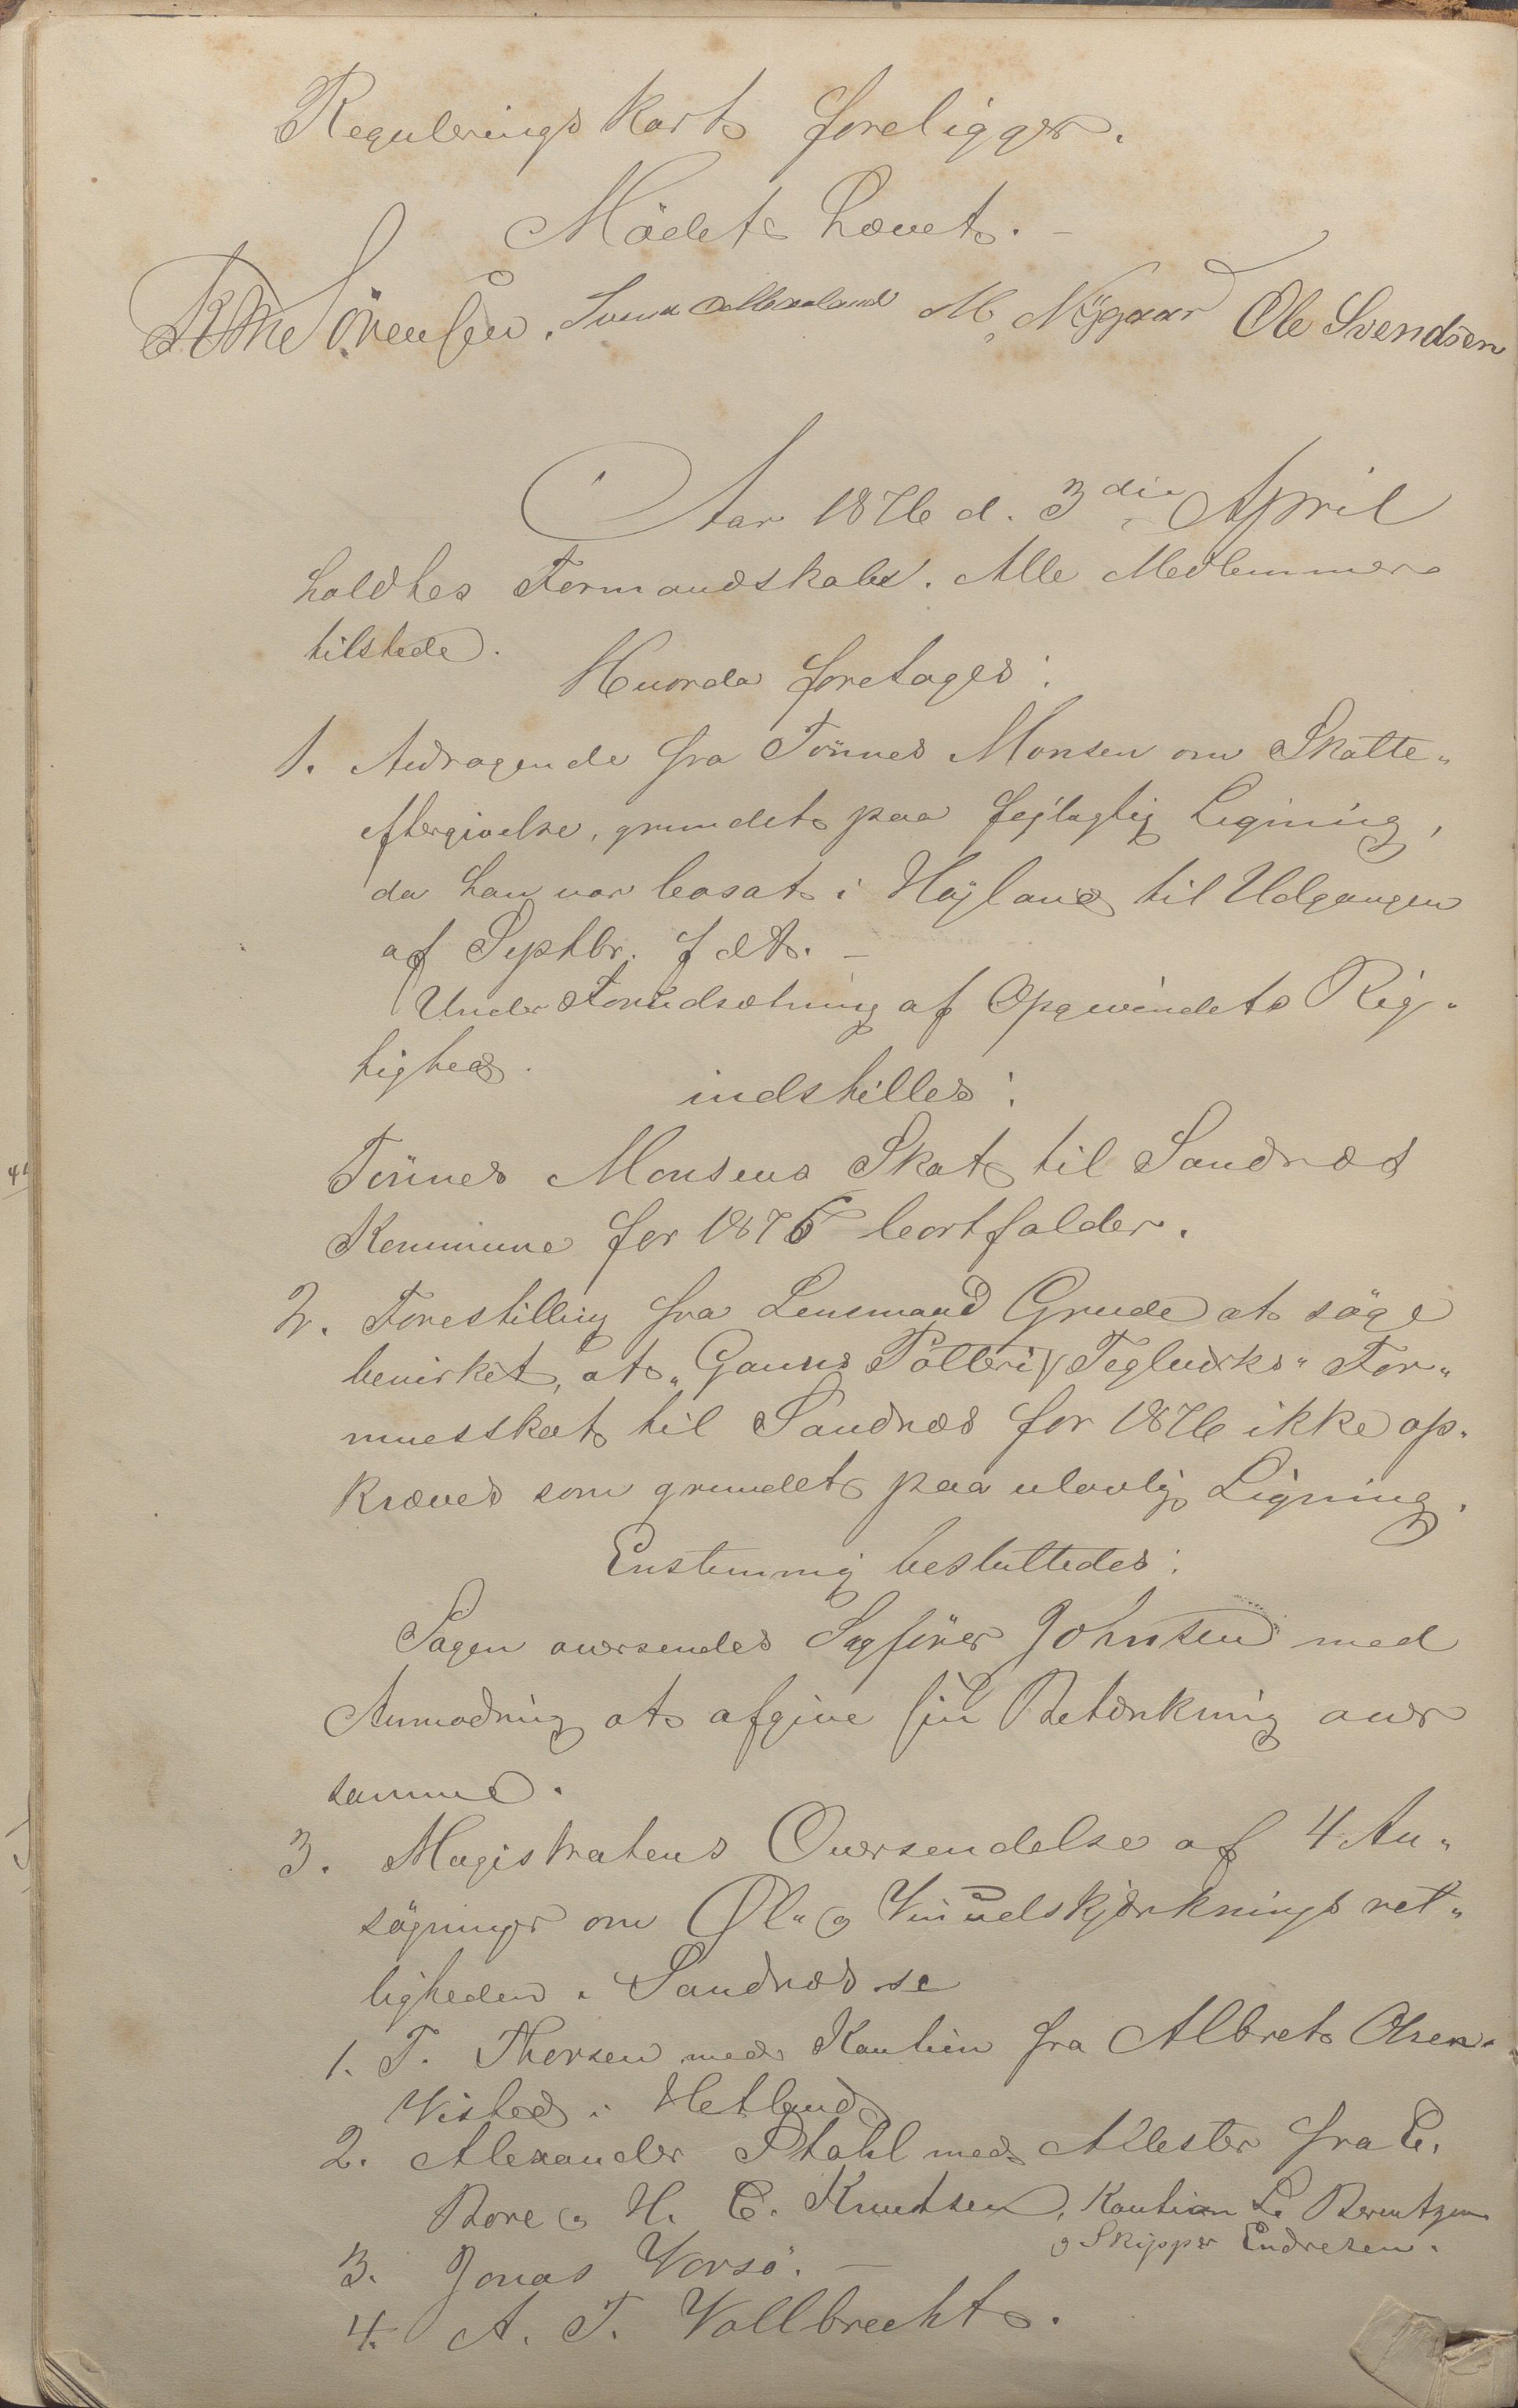 Regulerings Kart foreligger.
Mödet hævet. –
Sörensen. Svend M. Nÿgaar Ole Svendsen
Aar 1876 d. 3die April
holdtes Formandskab. Alle Medlemmer
tilstede.
Hvorda foretoges:
1. Andragende fra Tönnes Monsen om Skatte„
eftergivelse, grundet paa fejlagtig Ligning,
da han var bosat i Høÿland til Udgangen
af Septbr. f. At. –
Under Forudsætning af Opgivendets Rig„
tighed.
indstilles:
Tönnes Monsens Skat til Sandnæs
Kommune for 1876 bortfalder.
2. Forestilling fra Lensmand Grude at söge
bevirket, at „Gauns Potteri & Teglværks“ For„
muesskat til Sandnæs for 1876 ikke op„
kræves som grundet paa ulovlig Ligning.
Enstemmig besluttedes:
Sagen oversendes Sagförer Johnsen med
Anmodning at afgive sin Betænkning over
samme.
3. Magistratens Oversendelse af 4 An„
sögninger om Øl„ og Vinudskjænknings ret„
ligheden i Sandnæs se
1. T. Thorsen med Kaution fra Albret Olsen
Visted i Hetland
2. Alexander Stahl med Attester fra E.
Bore og H. C. Knudsen, Kaution L. Berentzen
og Skipper Endresen.
3. Jonas Vorsö. –
4. A. T. Vollbrecht.
41